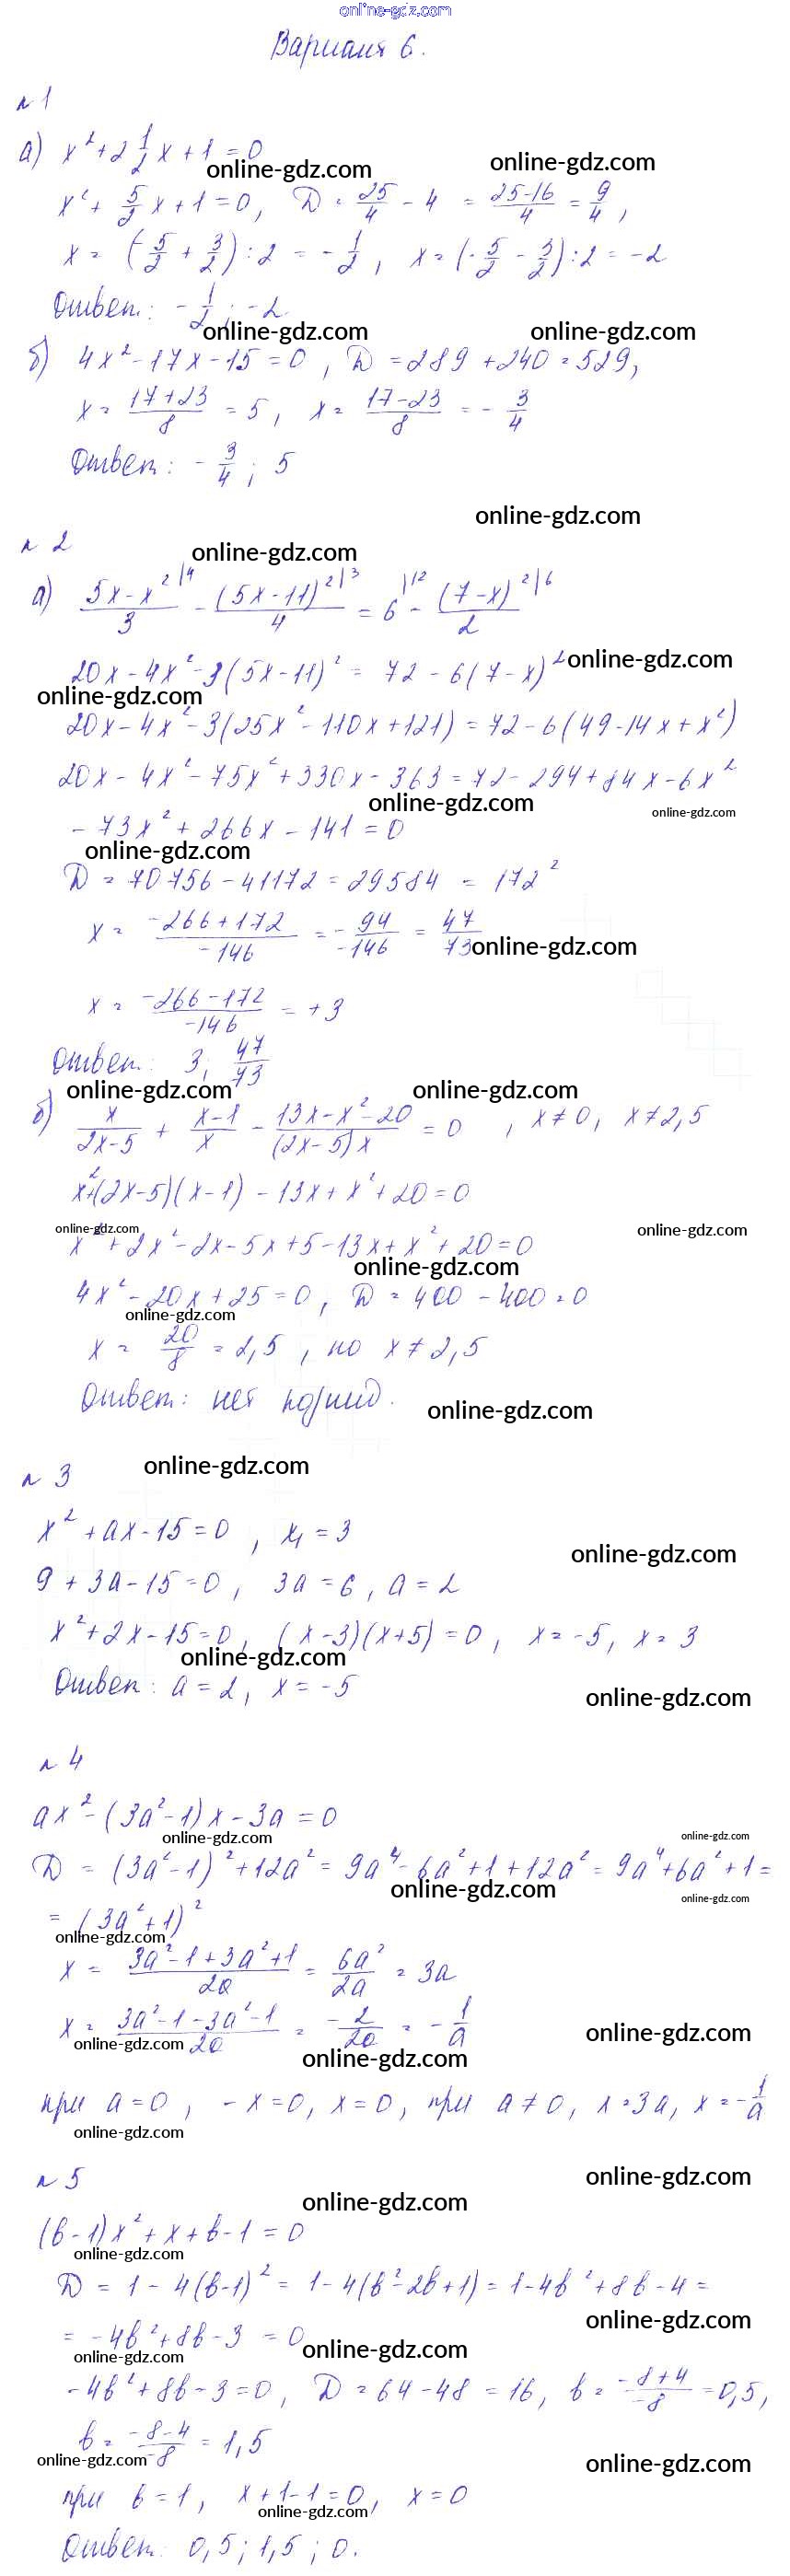 online-gdz.com
Вариант 6.
№1
а) x² + 2 1/2 x + 1 = 0
online-gdz.com online-gdz.com
x² + 5/2 x + 1 = 0, D = 25/4 - 4 = (25-16)/4 = 9/4,
x = (-5/2 + 3/2) : 2 = -1/2, x = (-5/2 - 3/2) : 2 = -2
Ответ: -1/2; -2
online-gdz.com online-gdz.com
б) 4x² - 17x - 15 = 0, D = 289 + 240 = 529,
x = (17+23)/8 = 5, x = (17-23)/8 = -3/4
Ответ: -3/4; 5
online-gdz.com
№2
online-gdz.com
а) (5x - x²)/3 |4 - (5x-11)²/4 |3 = 6 |12 - (7-x)²/2 |6
20x - 4x² - 3(5x-11)² = 72 - 6(7-x)² online-gdz.com
online-gdz.com
20x - 4x² - 3(25x² - 110x + 121) = 72 - 6(49 - 14x + x²)
20x - 4x² - 75x² + 330x - 363 = 72 - 294 + 84x - 6x²
online-gdz.com online-gdz.com
-73x² + 266x - 141 = 0
online-gdz.com
D = 70756 - 41172 = 29584 = 172²
x = (-266+172)/-146 = -94/-146 = 47/73 online-gdz.com
x = (-266-172)/-146 = +3
Ответ: 3; 47/73
online-gdz.com online-gdz.com
б) x/(2x-5) + (x-1)/x - (13x-x²-20)/((2x-5)x) = 0, x≠0, x≠2,5
x²+(2x-5)(x-1) - 13x + x² + 20 = 0
online-gdz.com online-gdz.com
x² + 2x² - 2x - 5x + 5 - 13x + x² + 20 = 0
online-gdz.com
4x² - 20x + 25 = 0, D = 400 - 400 = 0
online-gdz.com
x = 20/8 = 2,5, но x ≠ 2,5
Ответ: нет корней.
online-gdz.com
№3 online-gdz.com
x² + ax - 15 = 0, x₁ = 3
online-gdz.com
9 + 3a - 15 = 0, 3a = 6, a = 2
x² + 2x - 15 = 0, (x-3)(x+5) = 0, x = -5, x = 3
online-gdz.com
Ответ: a = 2, x = -5
online-gdz.com
№4
ax² - (3a²-1)x - 3a = 0
online-gdz.com online-gdz.com
D = (3a²-1)² + 12a² = 9a⁴ - 6a² + 1 + 12a² = 9a⁴ + 6a² + 1 =
online-gdz.com online-gdz.com
= (3a²+1)²
online-gdz.com
x = (3a²-1+3a²+1)/2a = 6a²/2a = 3a
x = (3a²-1-3a²-1)/2a = -2/2a = -1/a
online-gdz.com
online-gdz.com online-gdz.com
при a = 0, -x = 0, x = 0, при a ≠ 0, x = 3a, x = -1/a
online-gdz.com
№5 online-gdz.com
online-gdz.com
(b-1)x² + x + b - 1 = 0
online-gdz.com
D = 1 - 4(b-1)² = 1 - 4(b² - 2b + 1) = 1 - 4b² + 8b - 4 =
online-gdz.com
= -4b² + 8b - 3 = 0
online-gdz.com online-gdz.com
-4b² + 8b - 3 = 0, D = 64 - 48 = 16, b = (-8+4)/-8 = 0,5,
b = (-8-4)/-8 = 1,5
online-gdz.com online-gdz.com
при b = 1, x + 1 - 1 = 0, x = 0
online-gdz.com
Ответ: 0,5; 1,5; 0.